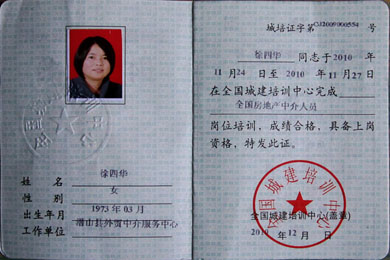 徐四华
姓 名
女
性 别
1973年03月
出生年月
潜山县外贸中介服务中心
工作单位
城培证字第CJ2009000554号
徐四华 同志于2010年
11月24日至2010年11月27日
在全国城建培训中心完成
全国房地产中介人员
岗位培训，成绩合格，具备上岗
资格，特发此证。
全国城建培训中心
全国城建培训中心(盖章)
2010年12月 日